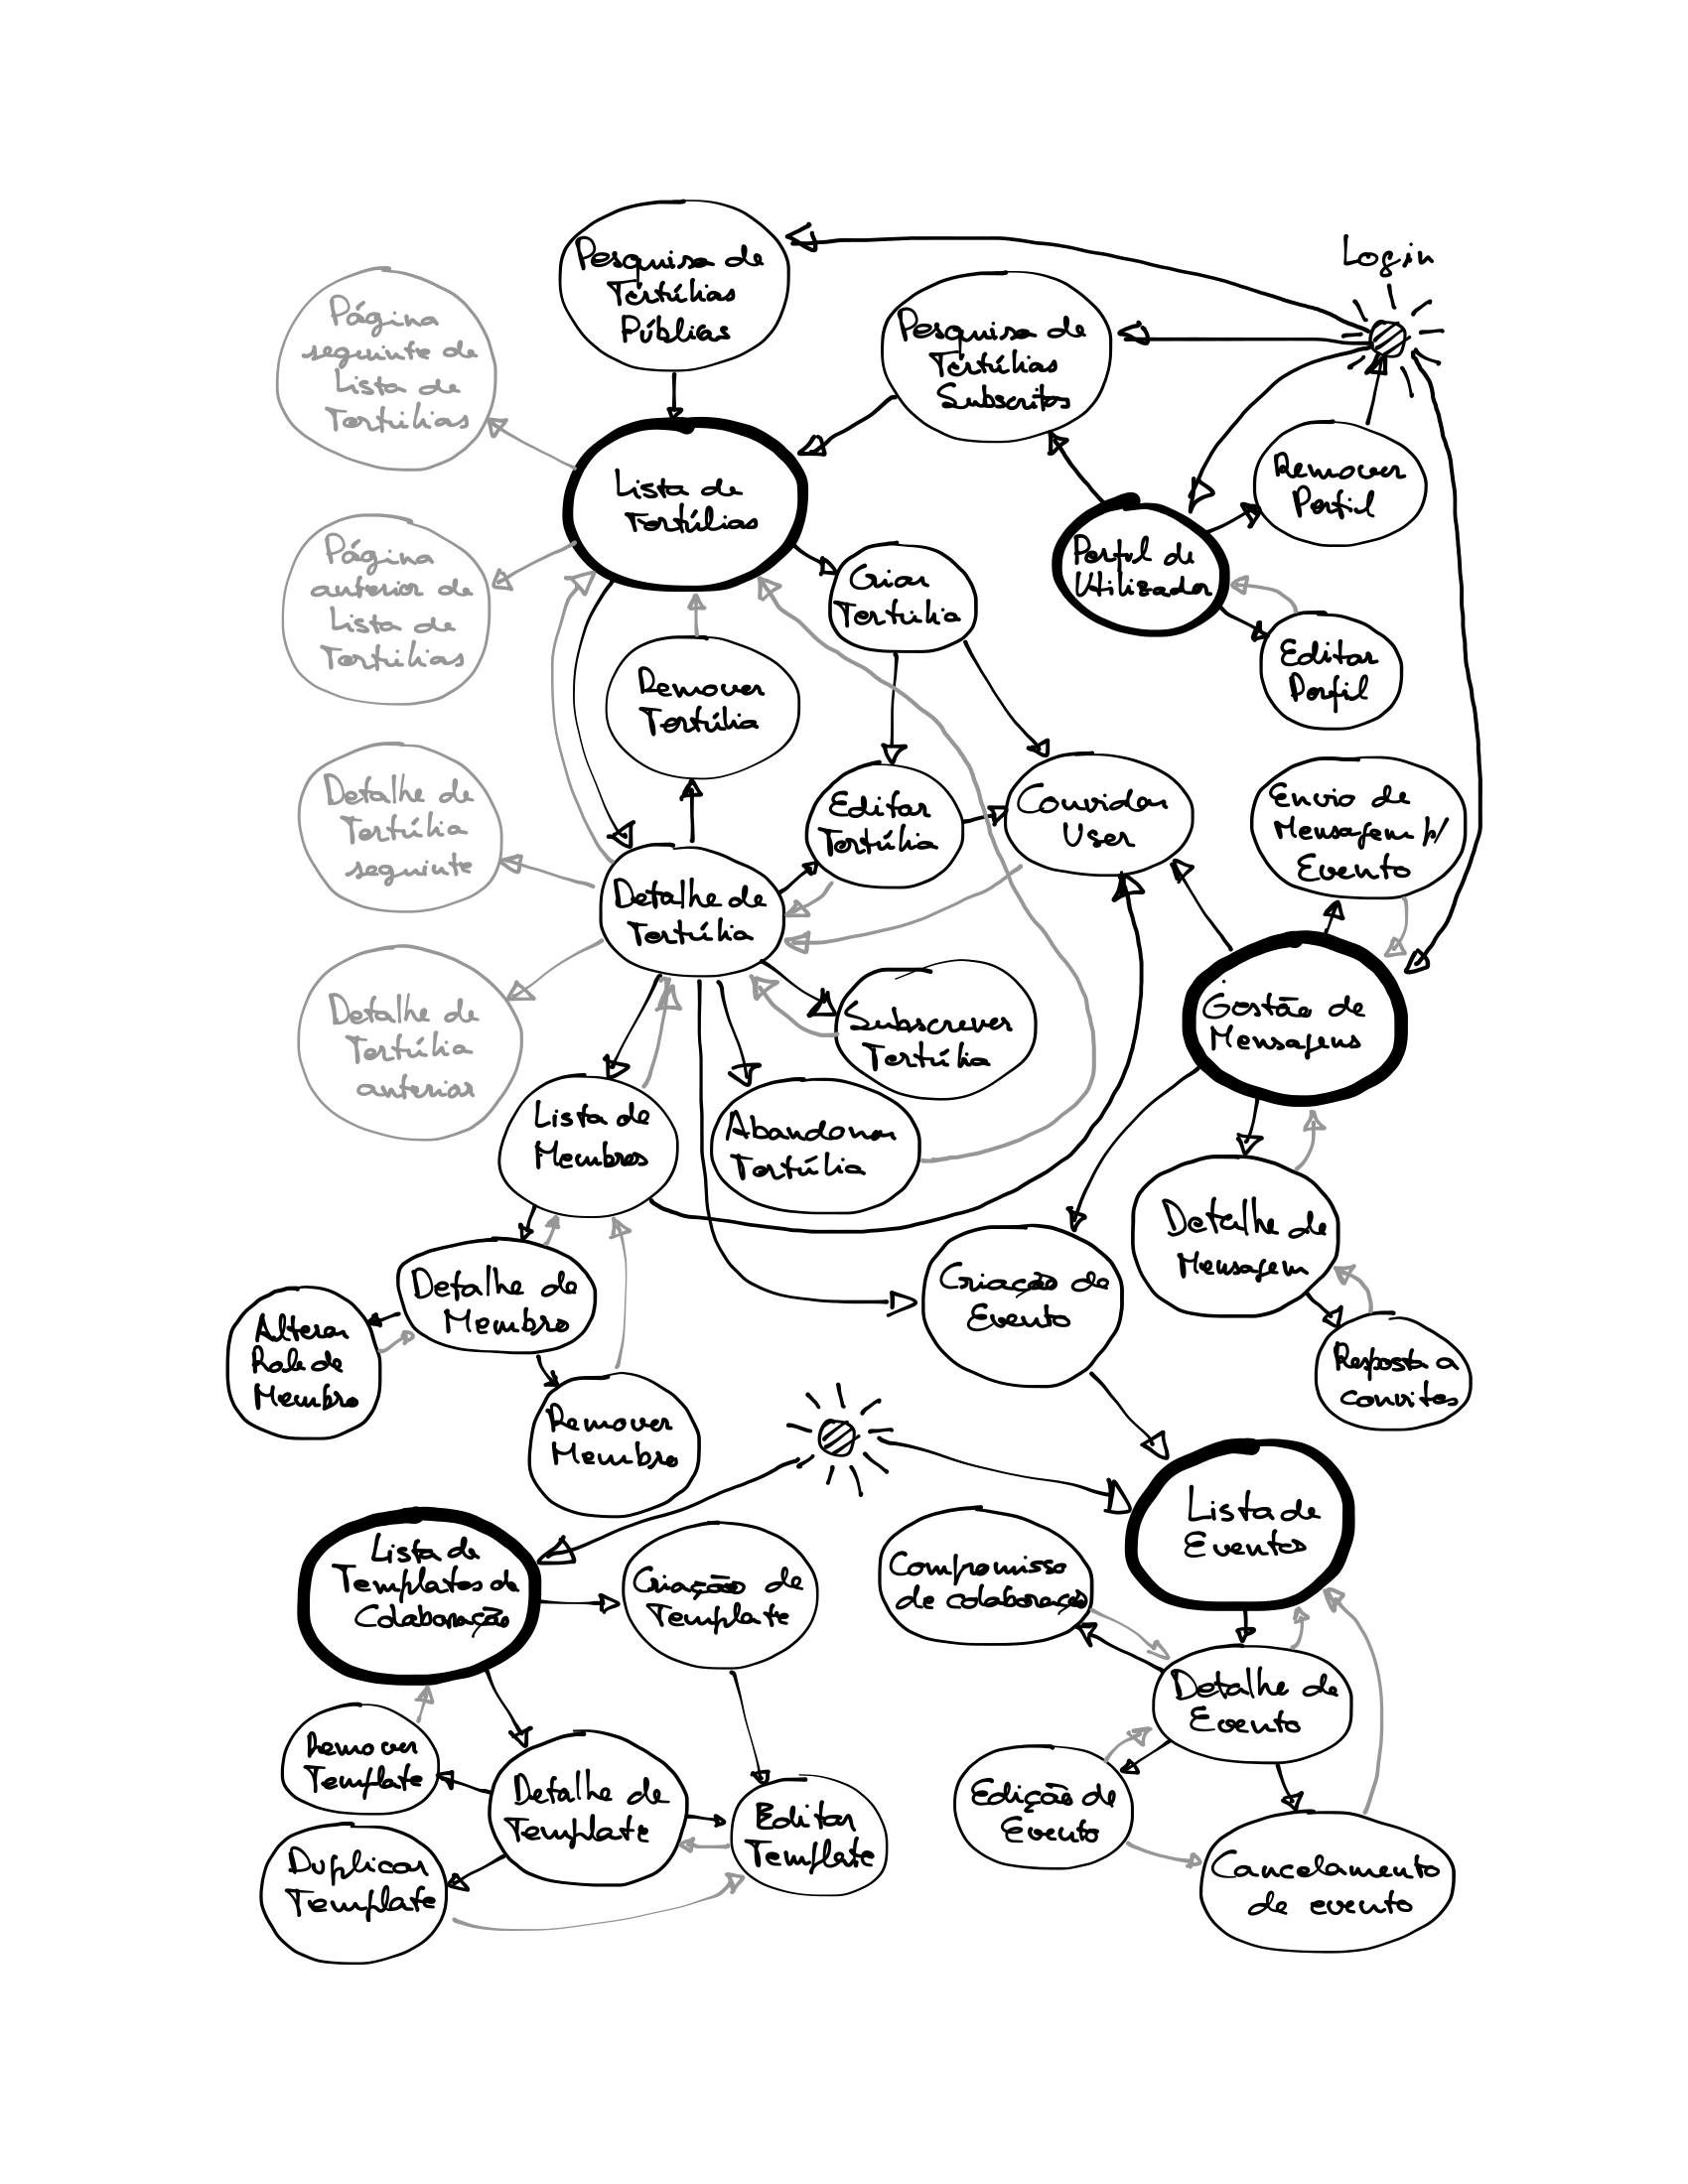 Login
Pesquisa de
Tertúlias
Públicas
Pesquisa de
Tertúlias
Subscritas
Página
seguinte de
Lista de
Tertúlias
Lista de
Tertúlias
Remover
Perfil
Perfil de
Utilizador
Página
anterior de
Lista de
Tertúlias
Criar
Tertúlia
Editar
Perfil
Remover
Tertúlia
Detalhe de
Tertúlia
seguinte
Editar
Tertúlia
Convidar
User
Envio de
Mensagem p/
Evento
Detalhe de
Tertúlia
Detalhe de
Tertúlia
anterior
Subscrever
Tertúlia
Gestão de
Mensagens
Lista de
Membros
Abandonar
Tertúlia
Detalhe de
Mensagem
Detalhe de
Membro
Criação de
Evento
Alterar
Role de
Membro
Resposta a
convites
Remover
Membro
Lista de
Eventos
Lista de
Templates de
Colaboração
Criação de
Template
Compromisso
de colaboração
Detalhe de
Evento
Remover
Template
Detalhe de
Template
Editar
Template
Edição de
Evento
Duplicar
Template
Cancelamento
de evento